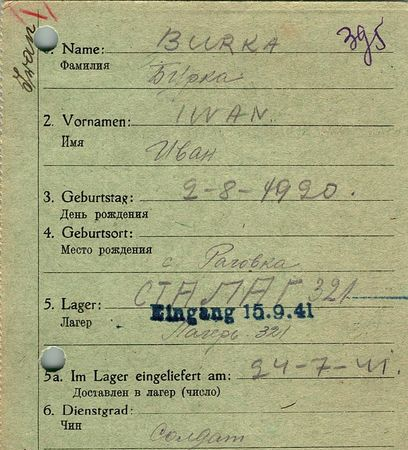 Ivan
1. Name: BURKA
395
Фамилия
Бурка
2. Vornamen: IWAN.
Имя
Иван
3. Geburtstag: 2-8-1920.
День рождения
4. Geburtsort:
Место рождения
с. Раговка
5. Lager: СТАЛАГ 321
Eingang 15.9.41
Лагерь Лагерь 321
5a. Im Lager eingeliefert am: 24-7-41.
Доставлен в лагерь (число)
6. Dienstgrad:
Чин
Солдат